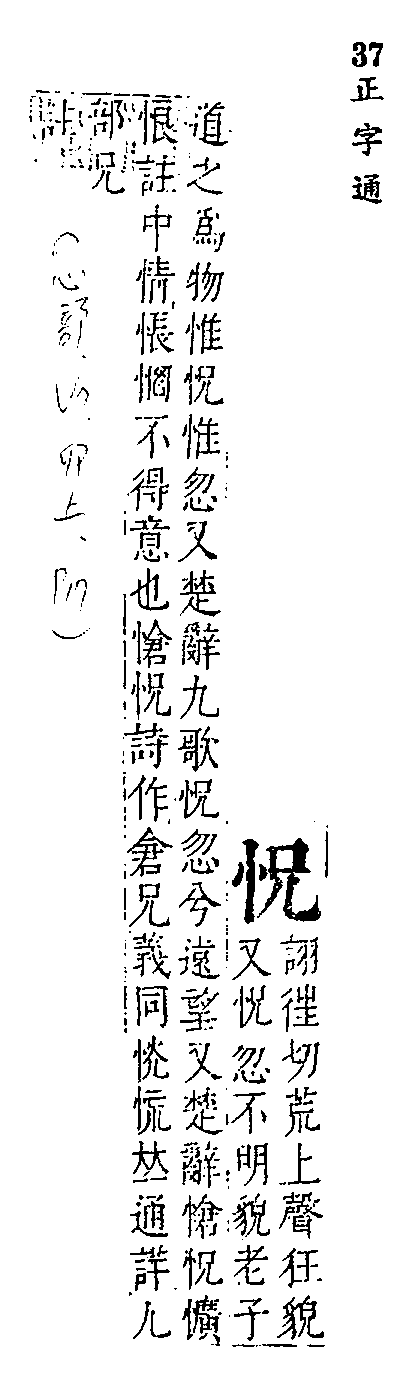 37 正字通
怳
詡徃切荒上聲狂貌
又怳忽不明貌老子
道之爲物惟怳惟忽又楚辭九歌怳忽兮遠望又楚辭愴怳懭
悢註中情悵惘不得意也愴怳詩作倉兄義同恍慌𠀤通詳儿
部兄
註
（心部、卯上、）